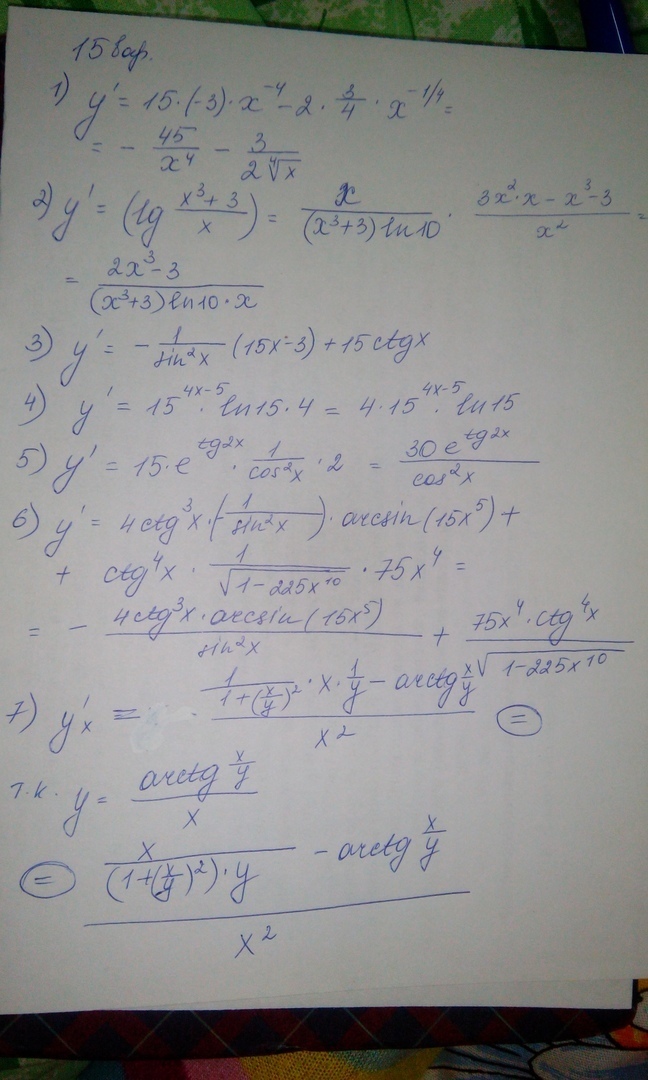 15 вар.
1) y' = 15·(-3)·x^{-4} - 2·\frac{3}{4}·x^{-1/4} =
= - \frac{45}{x^4} - \frac{3}{2\sqrt[4]{x}}
2) y' = (lg \frac{x^3+3}{x}) = \frac{x}{(x^3+3) ln10} · \frac{3x^2·x - x^3-3}{x^2} =
= \frac{2x^3-3}{(x^3+3) ln10·x}
3) y' = - \frac{1}{sin^2x} (15x-3) + 15 ctgx
4) y' = 15^{4x-5}·ln15·4 = 4·15^{4x-5}·ln15
5) y' = 15·e^{tg2x} · \frac{1}{cos^2x} · 2 = \frac{30 e^{tg2x}}{cos^2x}
6) y' = 4ctg^3x·(-\frac{1}{sin^2x})·arcsin(15x^5) +
+ ctg^4x · \frac{1}{\sqrt{1-225x^{10}}} · 75x^4 =
= - \frac{4ctg^3x·arcsin(15x^5)}{sin^2x} + \frac{75x^4·ctg^4x}{\sqrt{1-225x^{10}}}
7) y'_x = \frac{\frac{1}{1+(\frac{x}{y})^2}·x·\frac{1}{y} - arctg\frac{x}{y}}{x^2} =
т.к. y = \frac{arctg \frac{x}{y}}{x}
= \frac{\frac{x}{(1+(\frac{x}{y})^2)·y} - arctg \frac{x}{y}}{x^2}